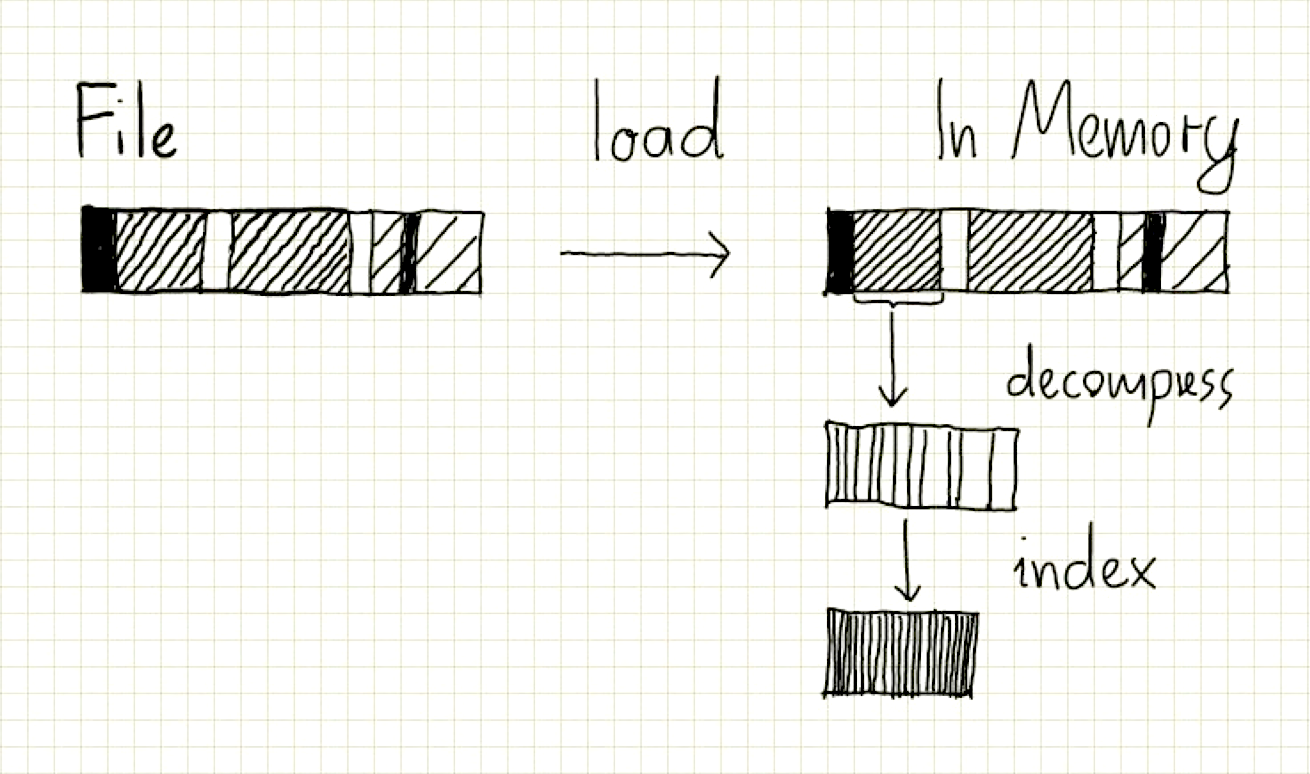 File load In Memory
decompress
index